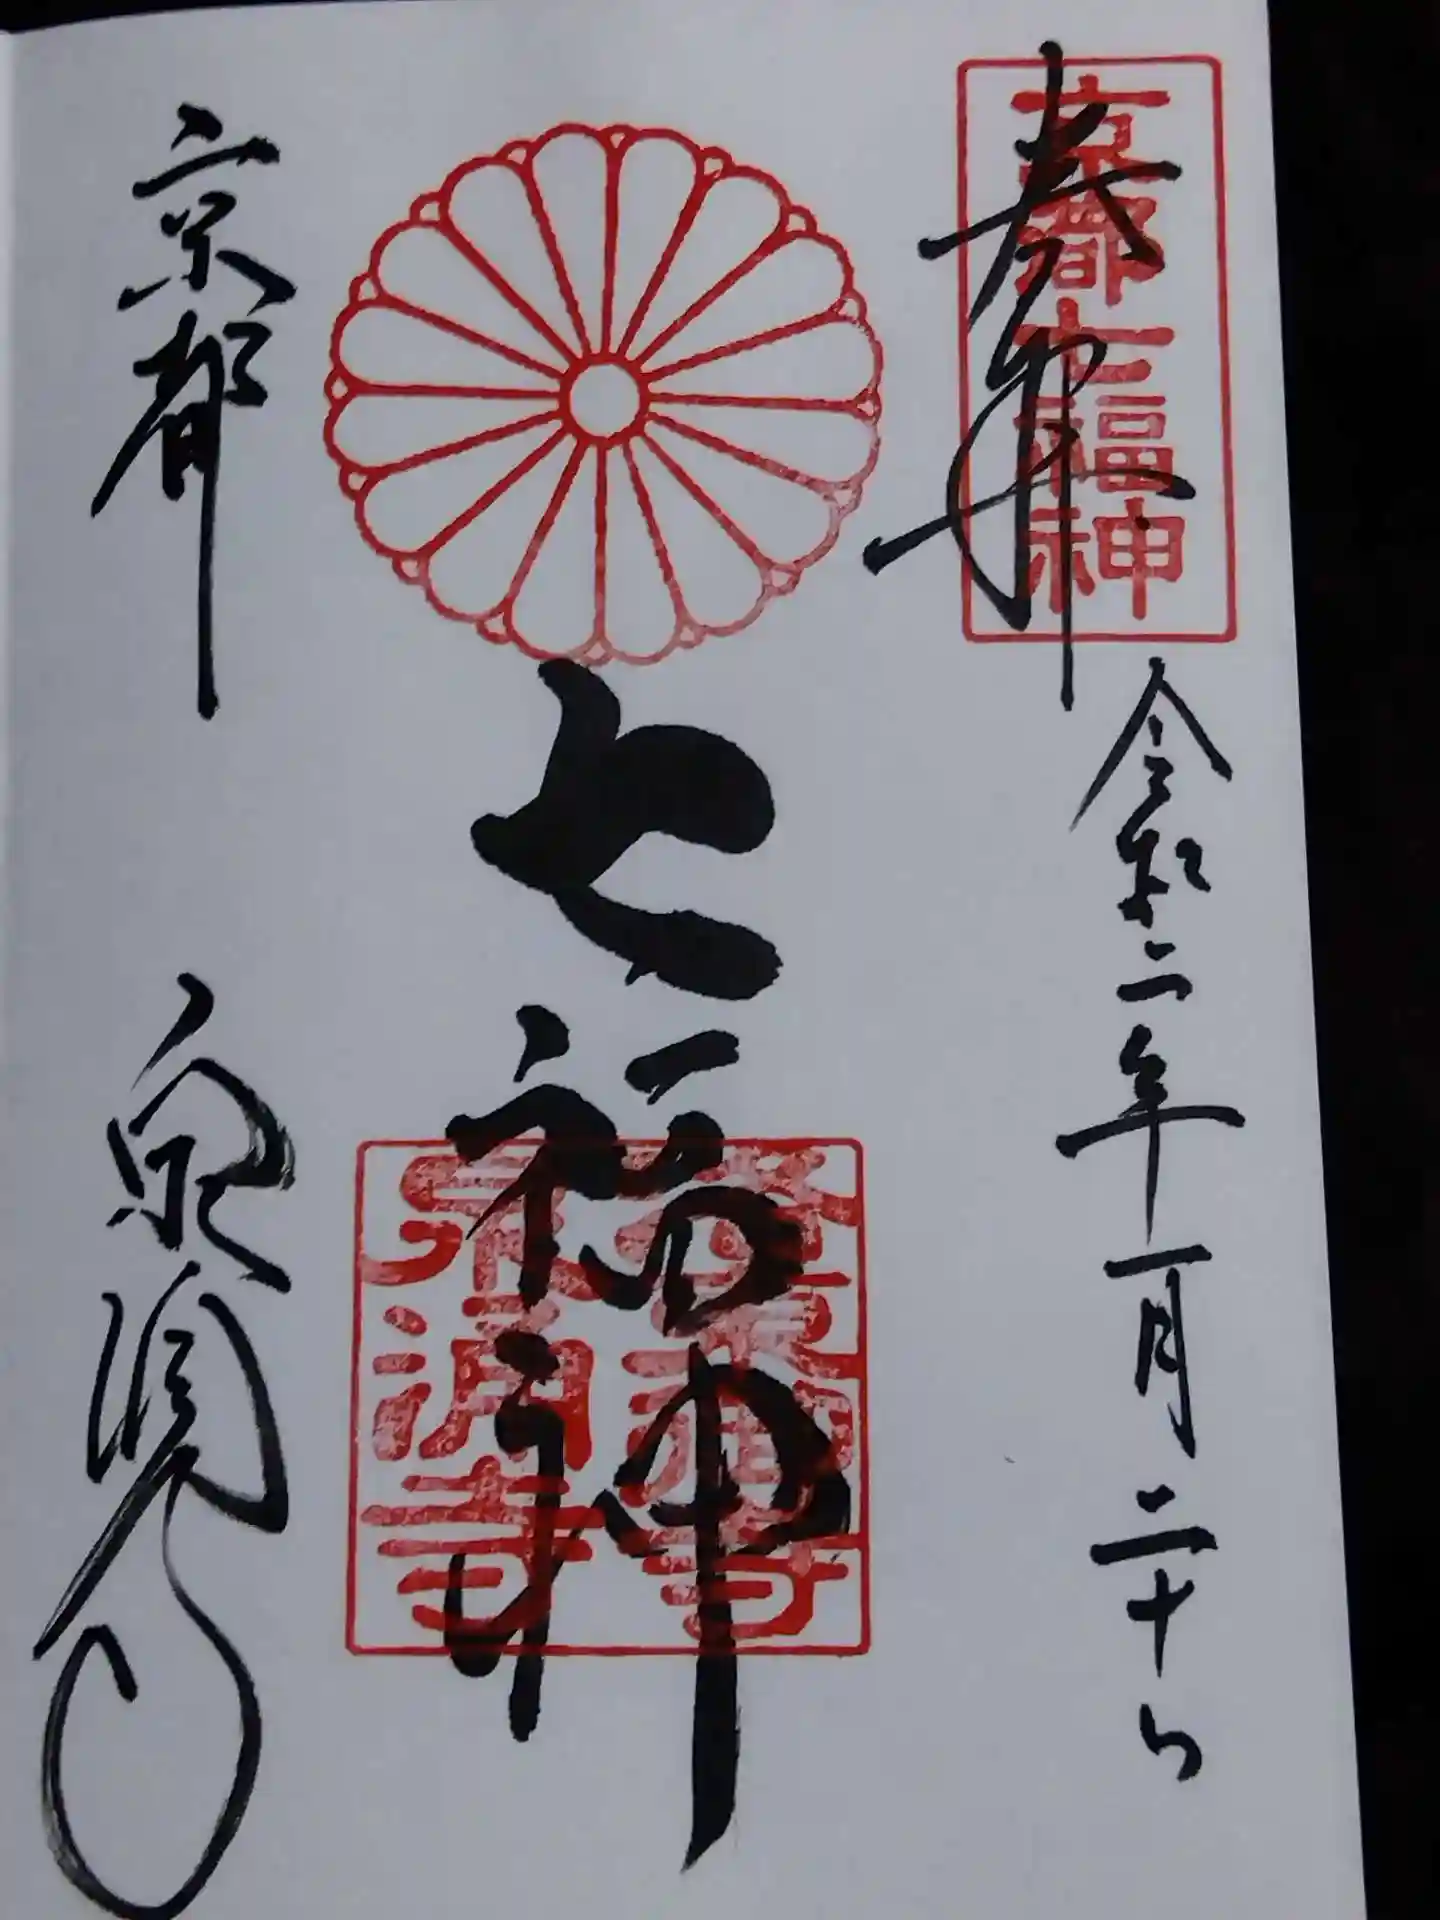 京都七福神
奉拝
令和二年一月二十日
七福神
泉涌寺
京都
泉涌寺